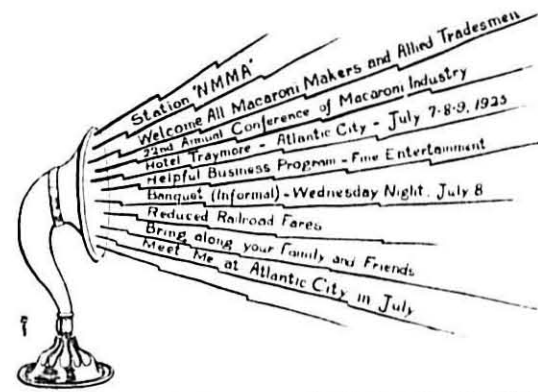 Station "NMMA"
Welcome All Macaroni Makers and Allied Tradesmen
22nd Annual Conference of Macaroni Industry
Hotel Traymore - Atlantic City - July 7-8-9, 1925
Helpful Business Program - Fine Entertainment
Banquet (Informal) - Wednesday Night, July 8
Reduced Railroad Fares
Bring along your Family and Friends
Meet Me at Atlantic City in July